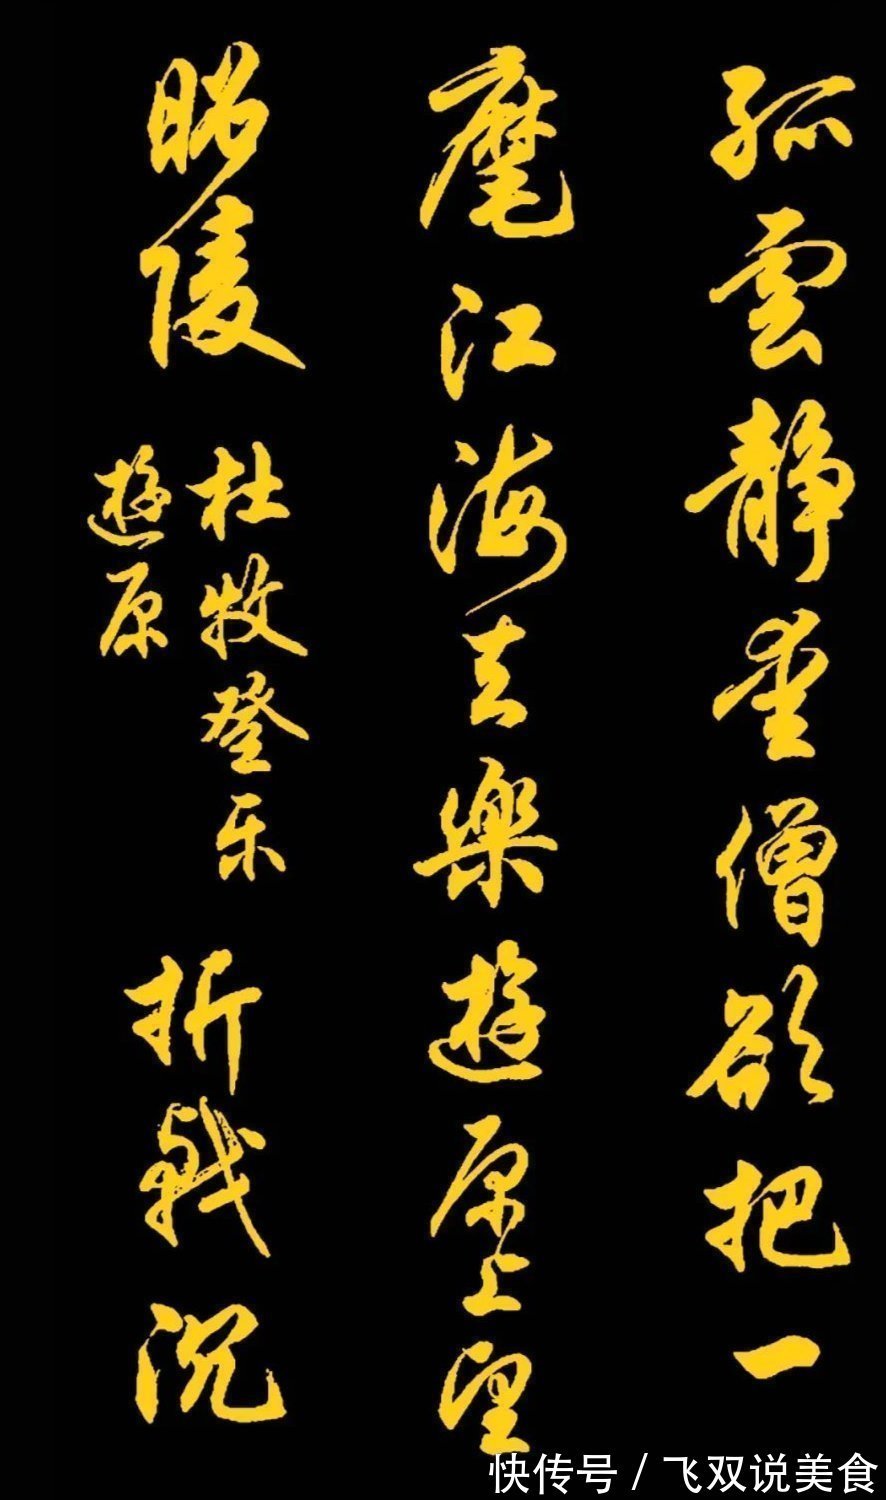 孤雲靜愛僧欲把一
麾江海去樂遊原上望
昭陵
杜牧登乐
遊原
折戟沉
快传号/飞双说美食